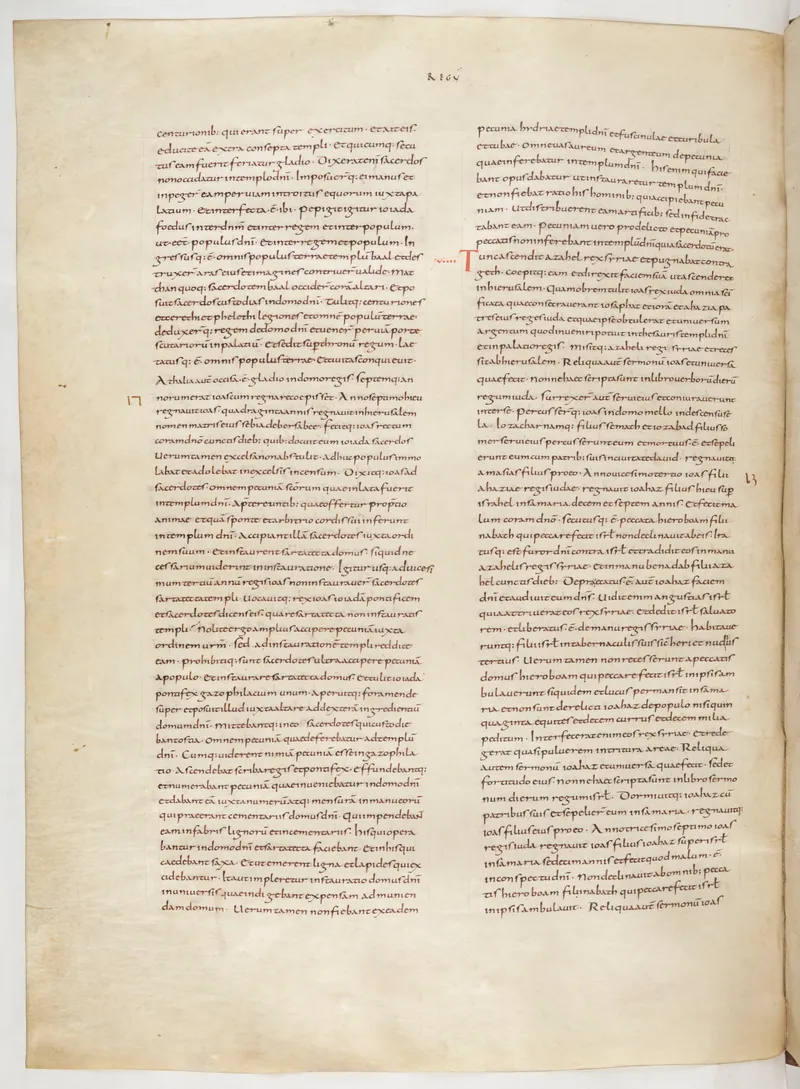 REGU
centurionib: qui erant super exercitum · et ait eis
educite eā extra consepta templi · et quicumq: secu
tus eam fuerit feriatur gladio · Dixerat enī sacerdos
non occidatur in templo dnī · Imposuer̄q: ei manus et
inpeger̄ eam per uiam introitus equorum iuxta pa
latium · et interfecta ē ibi · Pepigit igitur ioiada
foedus inter dnm̄ et inter regem et inter populum ·
ut eēt populus dnī · et inter regem et populum · In
gressusq: ē omnis populus terrae templū baal et des
truxer̄ aras eius et imagines contriuer̄ ualide · Mat
than quoq: sacerdotem baal occider̄ coram altari · Et po
suit sacerdos custodias in domo dnī · Tulitq: centuriones
et cerethi et phelethi legiones et omnē populū terrae
deduxer̄q: regem de domo dnī et uener̄ per uiā porte
scutariorū in palatiū · Et sedit sup̄ thronū regum · Lae
tatusq: ē omnis populus terrae · et ciuitas conquieuit ·
Athalia autē occisa ē gladio in domo regis · Septemq: an
norum erat ioas cum regnare coepisset · Anno septimo hieu
regnauit ioas · quadraginta annis regnauit in hierusalem
nomen matris eius sebia de bersabee · fecitq: ioas rectum
coram dnō cunctis dieb: quib: docuit eum ioiada sacerdos
Uerum tamen excelsa non abstulit · Adhuc populus immo
labat et adolebat in excelsis incensum · Dixitq: ioas ad
sacerdotes omnem pecuniā scōrum quae inlata fuerit
in templum dnī · A p̄tereuntib: quae offertur pro p̄tio
animae et quā sponte et arbitrio cordis sui inferunt
in templum dnī · Accipiant illā sacerdotes iuxta ordi
nem suum · Et instaurent sartatecta domus · si quid ne
cessarium uiderint instauratione · Igitur usq: ad uicesi
mum tertiū annū regis ioas non instaurauer̄ sacerdotes
sartatecta templi · Uocauitq: rex ioas ioiadā pontificem
et sacerdotes dicens eis · quare sartatecta non instauratis
templi · Nolite ergo amplius accipere pecuniā iuxta
ordinem urm̄ · sed ad instaurationē templi reddite
eam · prohibitiq: sunt sacerdotes ultra accipere pecuniā
a populo · et instaurare sartatecta domus · Et tulit ioiada
pontifex gazophilacium unum · aperuitq: foramen de
super et posuit illud iuxta altare ad dexterā ingredientiū
domum dnī · Mittebantq: in eo sacerdotes qui custodie
bant ostia · omnem pecuniā quae deferebatur ad templū
dnī · Cumq: uiderent nimiā pecuniā esse in gazophila
tio · Ascendebat scriba regis et pontifex · effundebantq:
et numerabant pecuniā quae inueniebatur in domo dnī
et dabant eā iuxta numerū atq: mensurā in manu eorū
qui praeerant cementariis domus dnī · Qui impendebant
eam in fabris lignorū et in cementariis · his qui opera
bantur in domo dnī et sartatecta faciebant · Et in his qui
caedebant saxa · Et ut emerent ligna et lapides qui ex
cidebantur · Ita ut impleretur instauratio domus dnī
in uniuersis quae indigebant expensam ad munien
dam domum · Uerum tamen non fiebant ex eadem
pecunia hydriae templi dnī et fuscinulae et turibula
et tubae · omne uas aureum et argenteum de pecunia
quae inferebatur in templum dnī · his enim qui facie
bant opus dabatur ut instauraretur templum dnī ·
et non fiebat ratio his hominib: qui accipiebant pecu
niam · ut distribuerent eam artificib: sed in fide trac
tabant eam · Pecuniam uero pro delicto et pecuniā pro
peccatis non inferebant in templū dnī quia sacerdotū erat ·
Tunc ascendit azahel rex syriae et pugnabat contra
geth · Coepitq: eam et direxit faciem suā ut ascenderet
in hierusalem · Quamobrem tulit ioas rex iuda omnia sc̄i
ficata quae consecrauerant iosaphat et iorā et ahazia pa
tres eius reges iuda et quae ipse obtulerat et uniuersum
argentum quod inueniri potuit in thesauris templi dnī
et in palatio regis · Misitq: azaheli regi syriae et reces
sit ab hierusalem · Reliqua autē sermonū ioas et uniuersa
quae fecit · Nonne haec scripta sunt in libro uerborū dierū
regum iuda · Surrexer̄ autē serui eius et coniurauerunt
inter se · Percusser̄q: ioas in domo mello in descensu se
la · Iozachar namq: filius semath et iozabad filius so
mer serui eius percusserunt eum et mortuus ē · et sepeli
erunt eum cum patrib: suis in ciuitate dauid · regnauitq:
amasias filius pro eo · Anno uicesimo tertio ioas filii
ahaziae regis iudae · regnauit ioahaz filius hieu sup̄
israhel in samaria decem et septem annis · et fecit ma
lum coram dnō · secutusq: ē peccata hieroboam filii
nabath qui peccare fecit isrl̄ non declinauit ab eis · Ira
tusq: est furor dnī contra isrl̄ et tradidit eos in manu
azahelis regis syriae · et in manu benadab filii aza
hel cunctis dieb: · Deprecatus ē autē ioahaz faciem
dnī et audiuit eum dns̄ · Uidit enim angustias isrl̄
quia attriuerat eos rex syriae · et dedit isrl̄ saluato
rem · et liberatus ē de manu regis syriae · habitaue
runtq: filii isrl̄ in tabernaculis suis sic heri et nudius
tertius · Uerum tamen non recesserunt a peccatis
domus hieroboam qui peccare fecit isrl̄ in ipsis am
bulauerunt siquidem et lucus permansit in sama
ria et non sunt derelicti ioahaz de populo nisi quin
quaginta equites et decem currus et decem milia
peditum · Interfecerat enim eos rex syriae · et rede
gerat quasi puluerem in tritura areae · Reliqua
autem sermonū ioahaz et uniuersa quae fecit · sed et
fortitudo eius nonne haec scripta sunt in libro sermo
num dierum regum isrl̄ · Dormiuitq: ioahaz cū
patribus suis et sepelier̄ eum in samaria · regnauitq:
ioas filius eius pro eo · Anno tricesimo septimo ioas
regis iuda regnauit ioas filius ioahaz super isrl̄
in samaria sedecim annis et fecit quod malum ē
in conspectu dnī · Non declinauit ab omnib: pecca
tis hieroboam filii nabath qui peccare fecit isrl̄
in ipsis ambulauit · Reliqua autē sermonū ioas